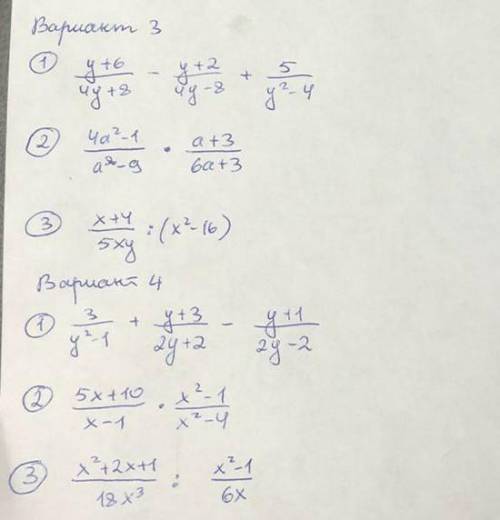 Вариант 3
① (y+6)/(4y+8) - (y+2)/(4y-8) + 5/(y²-4)
② (4a²-1)/(a²-9) · (a+3)/(6a+3)
③ (x+4)/(5xy) : (x²-16)
Вариант 4
① 3/(y²-1) + (y+3)/(2y+2) - (y+1)/(2y-2)
② (5x+10)/(x-1) · (x²-1)/(x²-4)
③ (x²+2x+1)/(18x³) : (x²-1)/(6x)